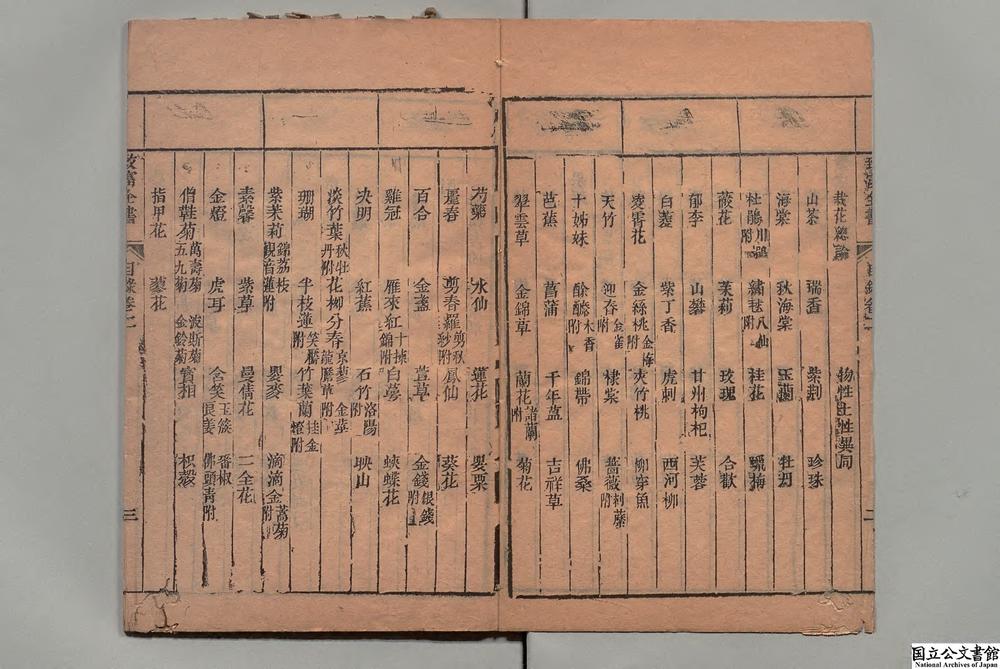 栽花總論 物性土性異同
山茶 瑞香 紫荆 珍珠
海棠 秋海棠 玉蘭 牡丹
杜鵑 川鵑附 繡毬 八仙附 桂花 蠟梅
薇花 茉莉 玫瑰 合歡
郁李 山礬 甘州枸杞 芙蓉
白菱 紫丁香 虎刺 西河柳
凌霄花 金絲桃 金梅附 夾竹桃 柳穿魚
天竹 迎春 金雀附 棣棠 薔薇 刺蘼附
十姊妹 酴醾 木香附 錦帶 佛桑
芭蕉 菖蒲 千年蒀 吉祥草
翠雲草 金錦草 蘭花 諸蘭附 菊花
二
芍藥 水仙 蓮花 罌粟
麗春 剪春羅 剪秋紗附 鳳仙 葵花
百合 金盞 萱草 金錢 銀錢附
雞冠 雁來紅 十樣錦附 白萼 蛺蝶花
决明 紅蕉 石竹 洛陽附 映山
淡竹葉 秋牡丹附 花柳分春
珊瑚 半枝蓮
紫茉莉 錦荔枝 觀音蓮附 罌麥 滴滴金 蒿菊附
素馨 紫草 曼倩花 二全花
金燈 虎耳 含笑 番椒 佛頭青附
僧鞋菊 萬壽菊 五九菊 波斯菊 金鈴菊 枳殼
指甲花 蓼花
三
国立公文書館
National Archives of Japan